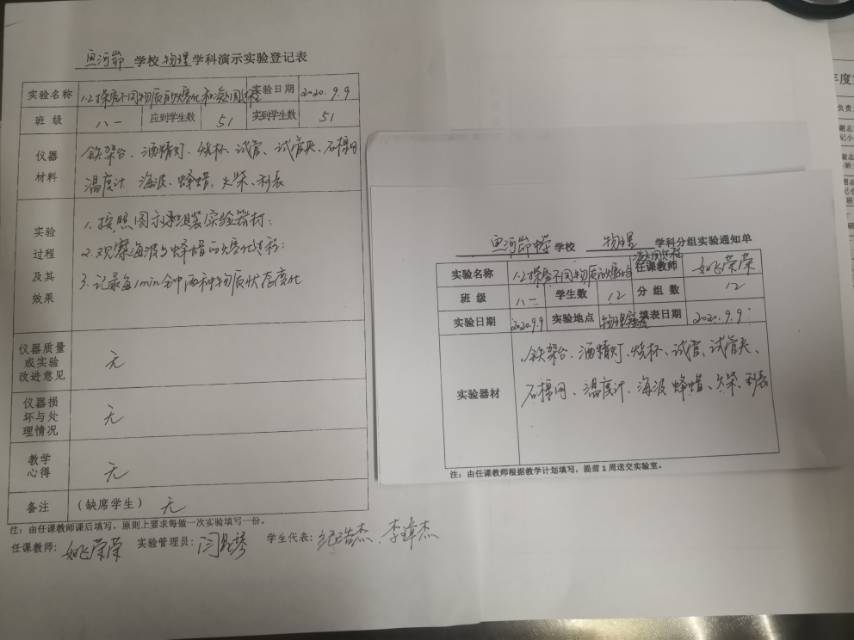 鱼河峁 学校 物理 学科演示实验登记表
实验名称 1.2探究不同物质的熔化和凝固 实验日期 2020.9.9
班级 八一 应到学生数 51 实到学生数 51
仪器材料 铁架台、酒精灯、烧杯、试管、试管夹、石棉网
温度计 海波、蜂蜡、火柴、秒表
实验过程及其效果
1.按照图示组装实验器材;
2.观察海波与蜂蜡的熔化过程;
3.记录每1min 两种物质状态变化
仪器质量或实验改进意见 无
仪器损坏与处理情况 无
教学心得 无
备注 (缺席学生) 无
注:由任课教师课后填写,原则上要求每做一次实验填写一份。
任课教师: 姚荣荣 实验管理员: 学生代表: 纪浩杰、李锦杰
鱼河峁 学校 物理 学科分组实验通知单
实验名称 1.2探究不同物质的熔化 任课教师 姚荣荣
班级 八一 学生数 12 分组数 12
实验日期 2020.9.9 实验地点 填表日期 2020.9.9
实验器材
铁架台、酒精灯、烧杯、试管、试管夹、
石棉网、温度计、海波 蜂蜡、火柴、秒表
注:由任课教师根据教学计划填写,提前1周送交实验室。
年度
负责